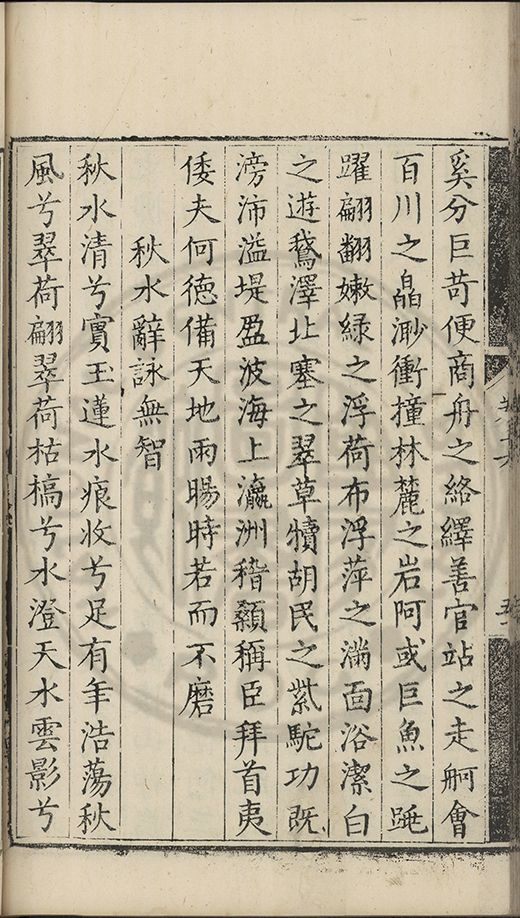 奚分巨苛便商舟之絡繹善官站之走舸會
百川之皛渺衝撞林麓之岩阿或巨魚之䟢
躍翩翻嫩綠之浮荷布浮萍之滿面浴潔白
之遊鵞澤北塞之翠草犢胡民之紫駝功既
滂沛溢堤盈波海上瀛洲稽顙稱臣拜首夷
倭夫何德備天地雨暘時若而不磨
秋水辭詠無智
秋水清兮實玉蓮水痕收兮足有年浩蕩秋
風兮翠荷翩翠荷枯槁兮水澄天水雲影兮